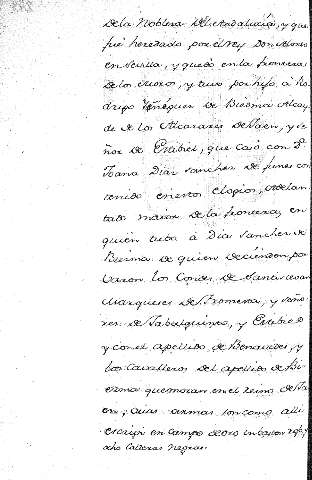 de la Nobleza de el Andalucia, y que
fue heredado por el rey Don Alonso
en Sevilla, y quedó en la frontera
de los Moros, y tuvo por hijo á Ro
drigo Yñiguez de Biezma Alcay
de de los Alcazares de Jaen, y se
ñor de Estibiel, que casó con Dª
Joana Diaz sanchez de funes con
tenido en estos elogios, Adelan
tado maior de la frontera, en
quien tubo á Dia sanchez de
Biezma de quien decienden por
varon los Condes de Santistevan
Marqueses de Fromesta, y seño
res de Jabalquinto, y Estibiel
y con el apellido de Benavides, y
los Cavalleros del apellido de Bi
ezma que moran en el Reino de Ja
en, cuias armas son como alli
escrivi en campo de oro un baston rojo, y
ocho Calderas negras.